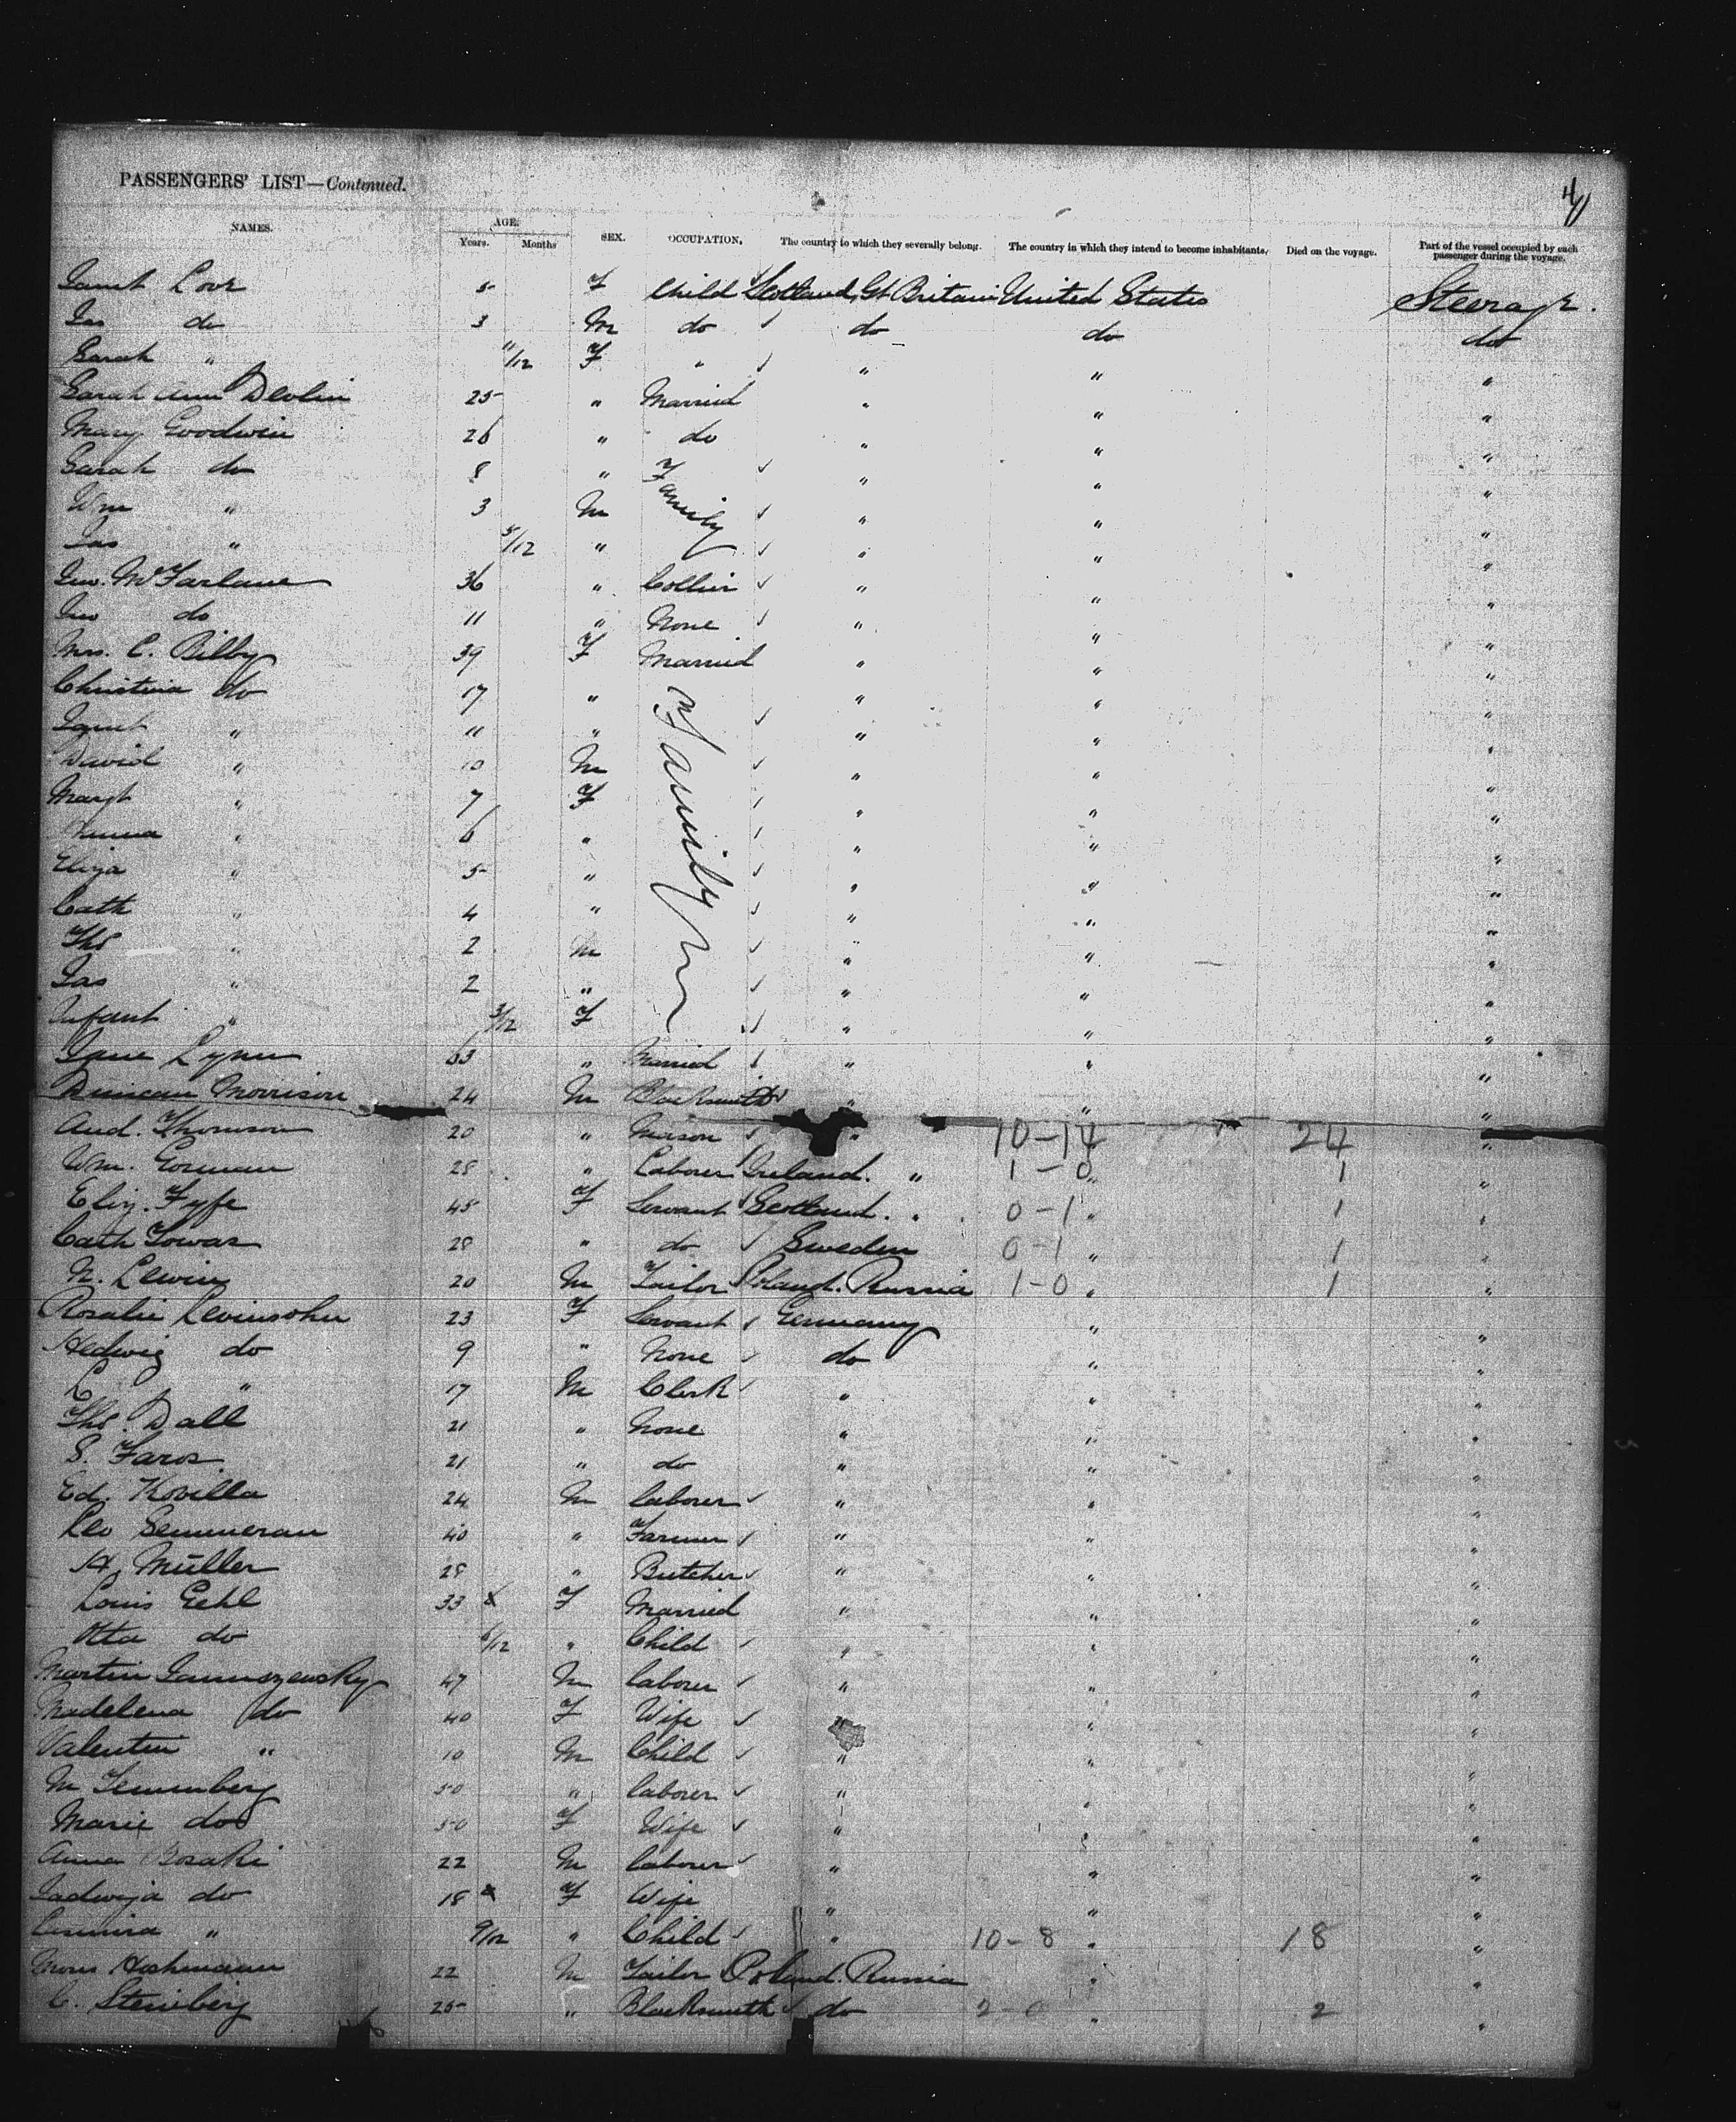 4
PASSENGERS' LIST—Continued.
NAMES. AGE. Years. Months SEX. OCCUPATION. The country to which they severally belong. The country in which they intend to become inhabitants. Died on the voyage. Part of the vessel occupied by each passenger during the voyage.
Janet Love 5 F Child Scotland, Gt Britain United States Steerage.
Jas do 3 M do do do do
Sarah " 11/12 F " " " "
Sarah Ann Devlin 25 " Married " " "
Mary Goodwin 26 " do " " "
Sarah do 8 " Family " " "
Wm " 3 M " " "
Jas " 5/12 " " " "
Geo. McFarlane 36 " Collier " " "
do 11 " None " " "
Mrs. C. Bilby 39 F Married " " "
Christina do 17 " Family " " "
Janet " 11 " " " "
David " 10 M " " "
Margt " 7 F " " "
" 6 " " " "
Eliza " 5 " " " "
Cath " 4 " " " "
Ths " 2 M " " "
Jas " 2 " " " "
Infant " 3/12 F " " "
Jane Lynn 63 " Married " " "
Duncan Morrison 24 M Blacksmith " " "
And. Thomson 20 " Mason " 10-14 24 "
Wm. Gorman 28 " Laborer Ireland. " 1-0 " 1 "
Eliz. Fyfe 45 F Servant Scotland. " 0-1 " 1 "
Cath 28 " do Sweden 0-1 " 1 "
N. Lewin 20 M Tailor Poland. Russia 1-0 " 1 "
Rosalie Levinsohn 23 F Servant Germany " "
Hedwig do 9 " None do " "
L " 17 M Clerk " " "
Ths. Dall 21 " None " " "
S. Faros 21 " do " " "
Ed. Kovilla 24 M Laborer " " "
Leo Semmerau 40 " Farmer " " "
H. Müller 28 " Butcher " " "
Louis Gehl 33 F Married " " "
Otta do 6/12 " Child " " "
Martin Januszewsky 47 M Laborer " " "
Madelena do 40 F Wife " " "
Valentin " 10 M Child " " "
M 50 " Laborer " " "
Marie do 50 F Wife " " "
Anna 22 M Laborer " " "
Jadwija do 18 F Wife " " "
" 9/12 " Child " 10-8 " 18 "
Hochmann 22 M Tailor Poland. Russia " "
C. Steinberg 25 " Blacksmith do 2-0 " 2 "